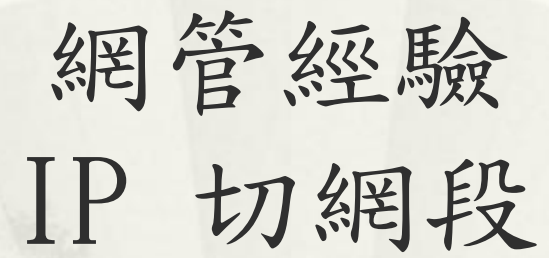 網管經驗
IP 切網段